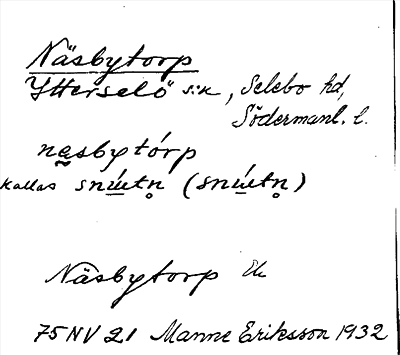 Näsbytorp
Ytterselö s:n, Selebo hd,
Södermanl. l.
näsbytórp
kallas
Näsbytorp Ek
75 NV 21 Manne Eriksson 1932